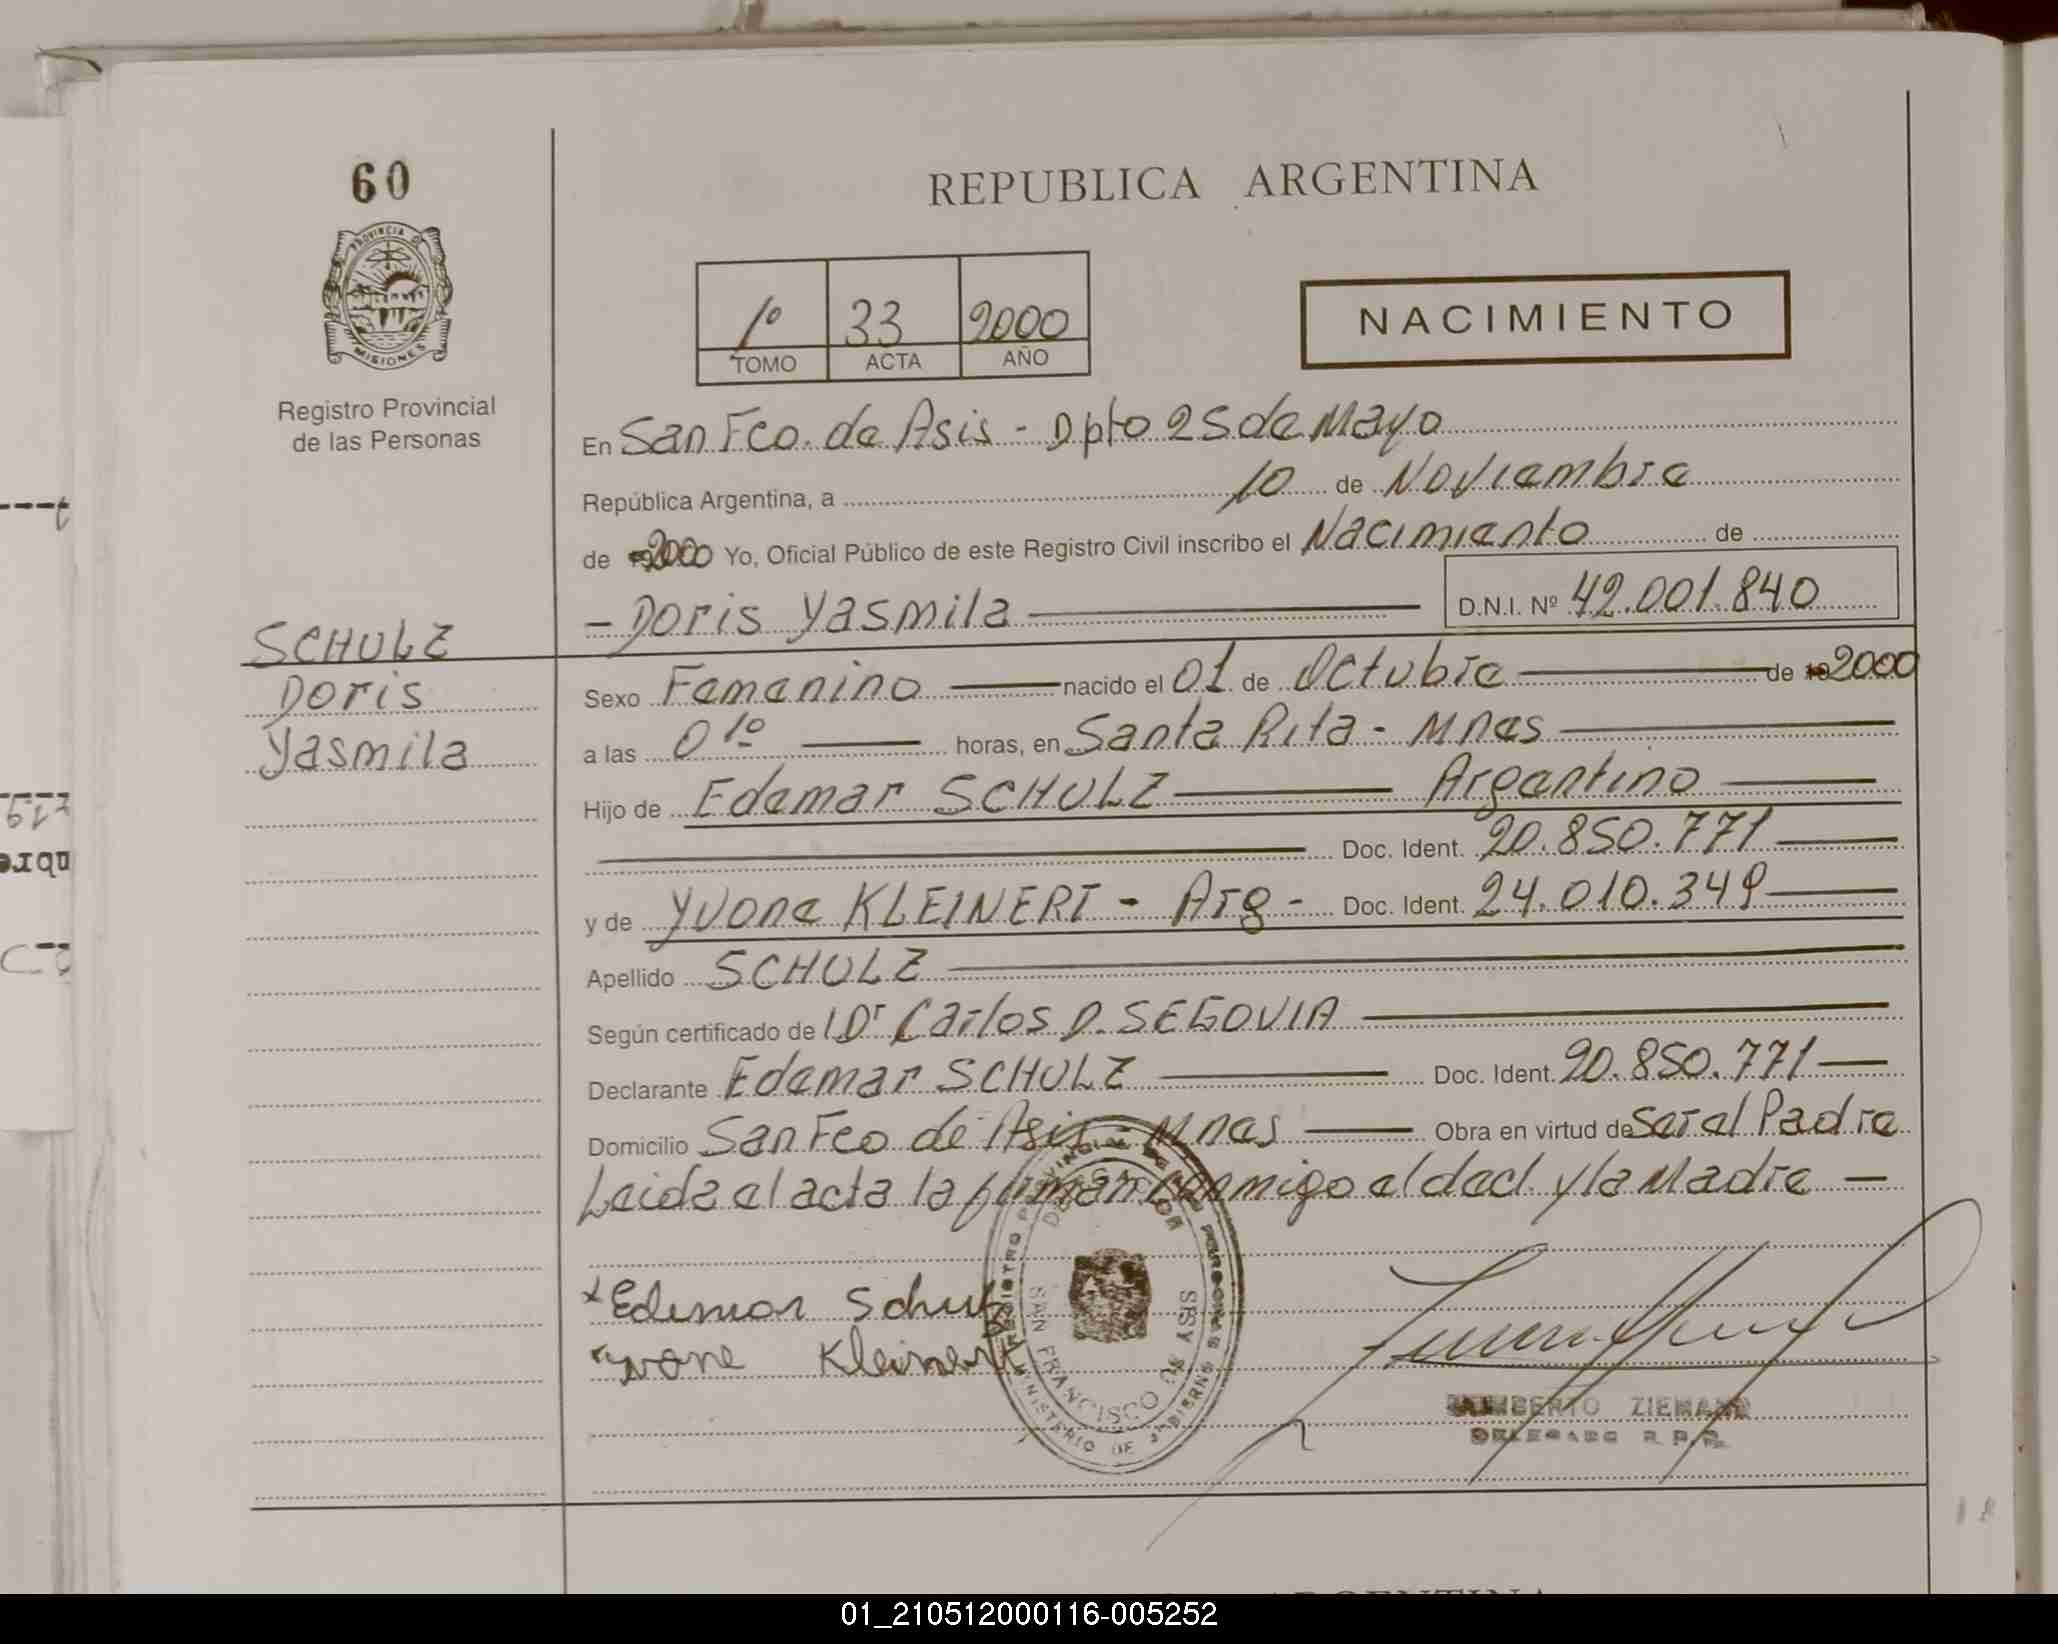 60
REPUBLICA ARGENTINA
PROVINCIA DE
MISIONES
Registro Provincial
de las Personas
1º 33 2000
TOMO ACTA AÑO
NACIMIENTO
En San Fco. de Asis - Dpto 25 de Mayo
República Argentina, a 10 de Noviembre
de 2000 Yo, Oficial Público de este Registro Civil inscribo el Nacimiento de
- Doris Yasmila D.N.I. Nº 42.001.840
SCHULZ
Doris
Yasmila
Sexo Femenino nacido el 01 de Octubre de 2000
a las 01º horas, en Santa Rita - Mnes
Hijo de Edemar SCHULZ Argentino
Doc. Ident. 20.850.771
y de Yvone KLEINERT - Arg - Doc. Ident. 24.010.349
Apellido SCHULZ
Según certificado de Dr Carlos D. SEGOVIA
Declarante Edemar SCHULZ Doc. Ident. 20.850.771
Domicilio San Fco de Asis - Mnes Obra en virtud de ser el Padre
Leida el acta la firman conmigo el decl. y la Madre
Edemar Schulz
Yvone Kleinert
SAN FRANCISCO DE ASIS
MINISTERIO DE GOBIERNO
ZIEMANN
DELEGADO R. P. P.
01_210512000116-005252